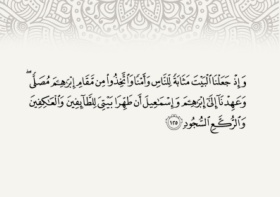 وَإِذْ جَعَلْنَا الْبَيْتَ مَثَابَةً لِّلنَّاسِ وَأَمْنًا وَاتَّخِذُوا مِن مَّقَامِ إِبْرَٰهِـۧمَ مُصَلًّى ۖ
وَعَهِدْنَآ إِلَىٰٓ إِبْرَٰهِـۧمَ وَإِسْمَٰعِيلَ أَن طَهِّرَا بَيْتِيَ لِلطَّآئِفِينَ وَالْعَٰكِفِينَ
وَالرُّكَّعِ السُّجُودِ ١٢٥